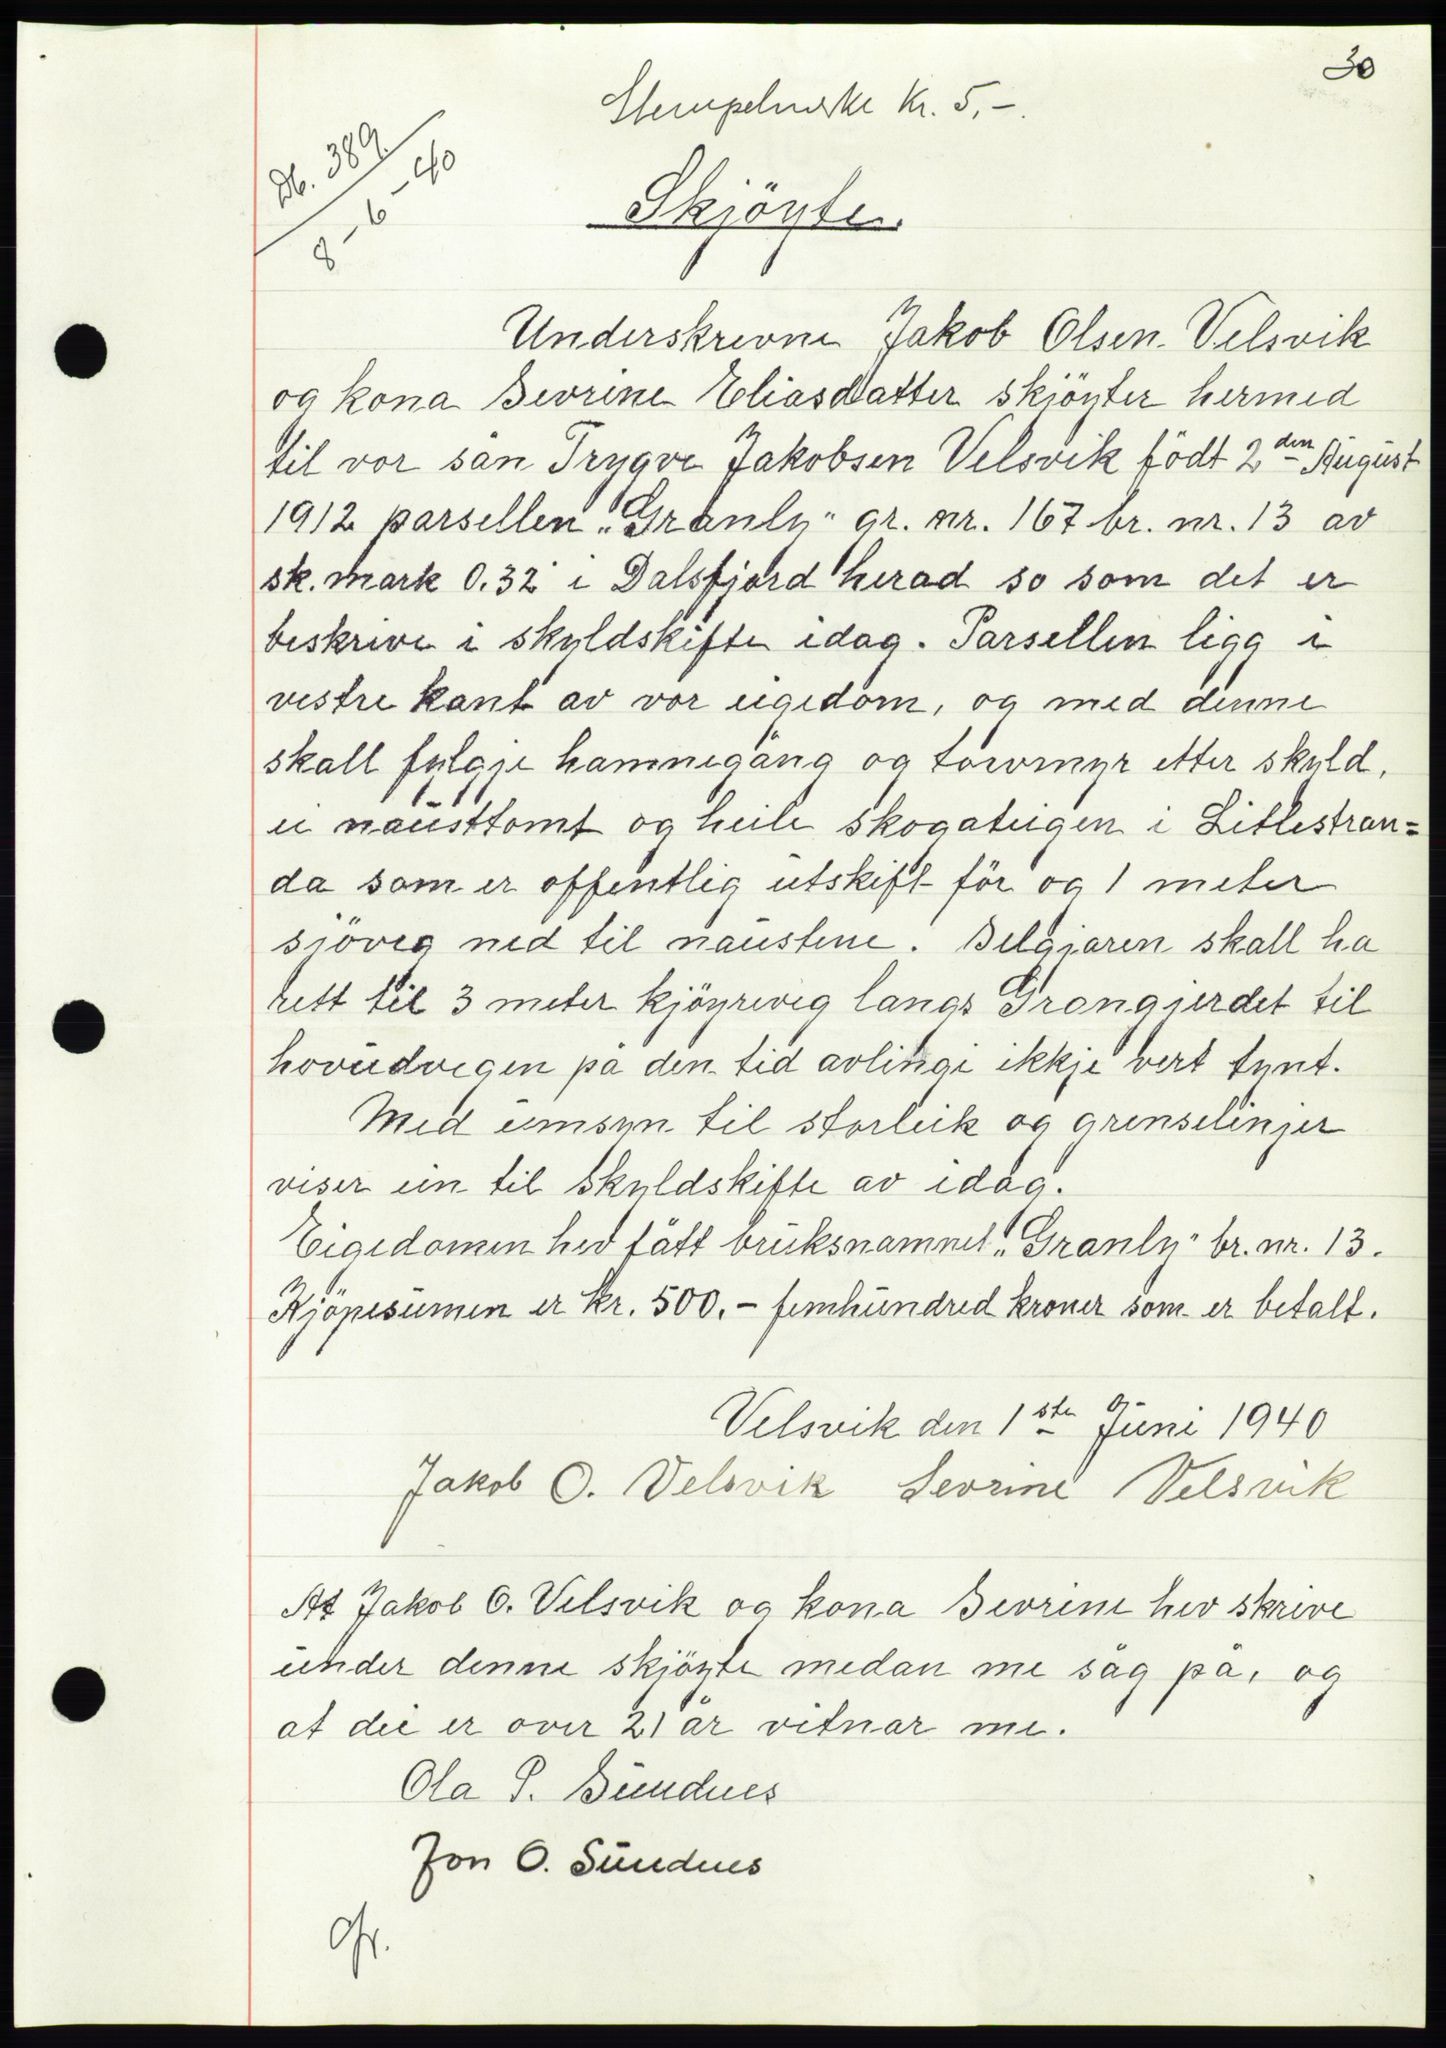 30
Stempelmerke Kr. 5,-.
Db. 389
8-6-40
Skjöyte.
Underskrevne Jakob Olsen Velsvik
og kona Sevrine Eliasdatter skjöyter hermed
til vor sån Trygve Jakobsen Velsvik födt 2den August
1912 parsellen „Granly" gr. nr. 167 br. nr. 13 av
sk. mark 0.32 i Dalsfjord herad so som det er
beskrive i skyldskifte idag. Parsellen ligg i
vestre kant av vor eigedom, og med denne
skall fylgje hamnegång og torvmyr etter skyld,
ei nausttomt og heile skogateigen i Litlestran=
da som er offentlig utskift för og 1 meter
sjöveg ned til naustene. Selgjaren skall ha
rett til 3 meter kjöyreveg langs Grangjerdet til
hovudvegen på den tid avlingi ikkje vert tynt.
Med umsyn til storleik og grenselinjer
viser ein til skyldskifte av idag.
Eigedomen hev fått bruksnamnet „Granly" br. nr. 13.
Kjöpesumen er kr. 500.- femhundred kroner som er betalt.
Velsvik den 1ste Juni 1940
Jakob O. Velsvik Sevrine Velsvik
At Jakob O. Velsvik og kona Sevrine hev skrive
under denne skjöyte medan me såg på, og
at dei er over 21 år vitnar me.
Ola P. Sundnes
Jon O. Sundnes